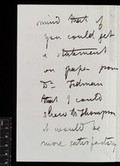 mind that if
you could get
a statement
on paper from
Dr. Tidman
that I could
show to Thompson
it would be
more satisfactory